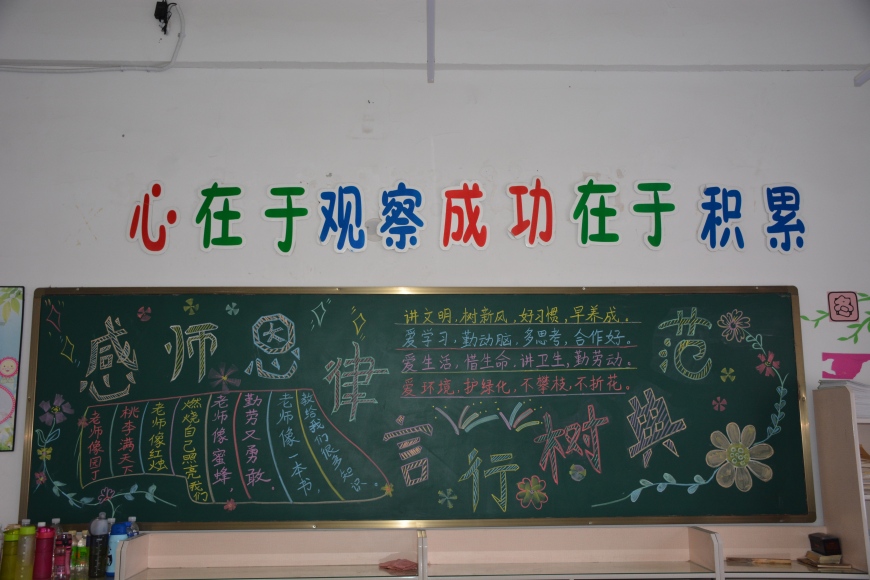 心在于观察成功在于积累
感师恩
老师像园丁
桃李满天下
老师像红烛
燃烧自己照亮我们
老师像蜜蜂，
勤劳又勇敢，
老师像一本书，
教给我们很多知识。
讲文明，树新风，好习惯，早养成。
爱学习，勤动脑，多思考，合作好。
爱生活，惜生命，讲卫生，勤劳动。
爱环境，护绿化，不攀枝，不折花。
律言行树典范